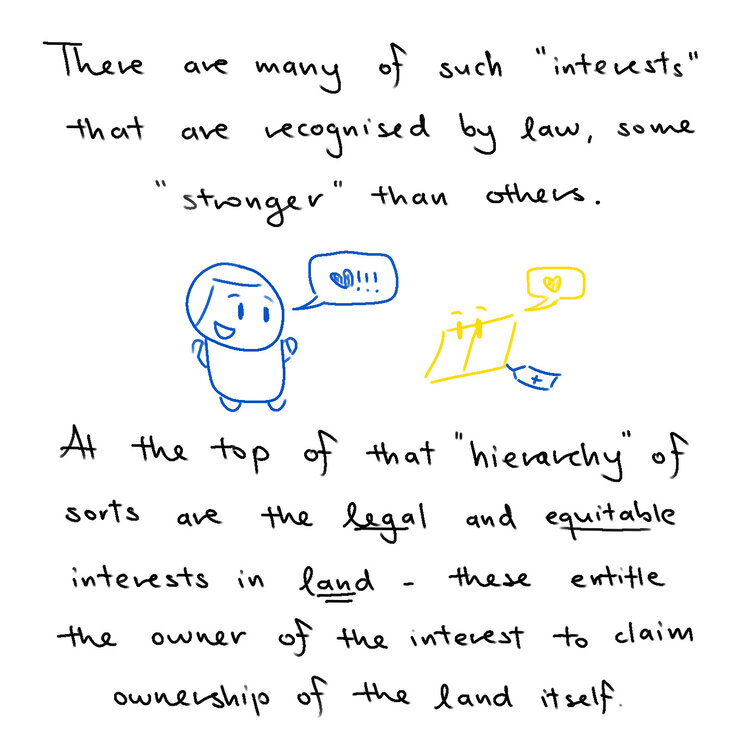 There are many of such "interests"
that are recognised by law, some
"stronger" than others.
!!!
+
At the top of that "hierarchy" of
sorts are the legal and equitable
interests in land - these entitle
the owner of the interest to claim
ownership of the land itself.